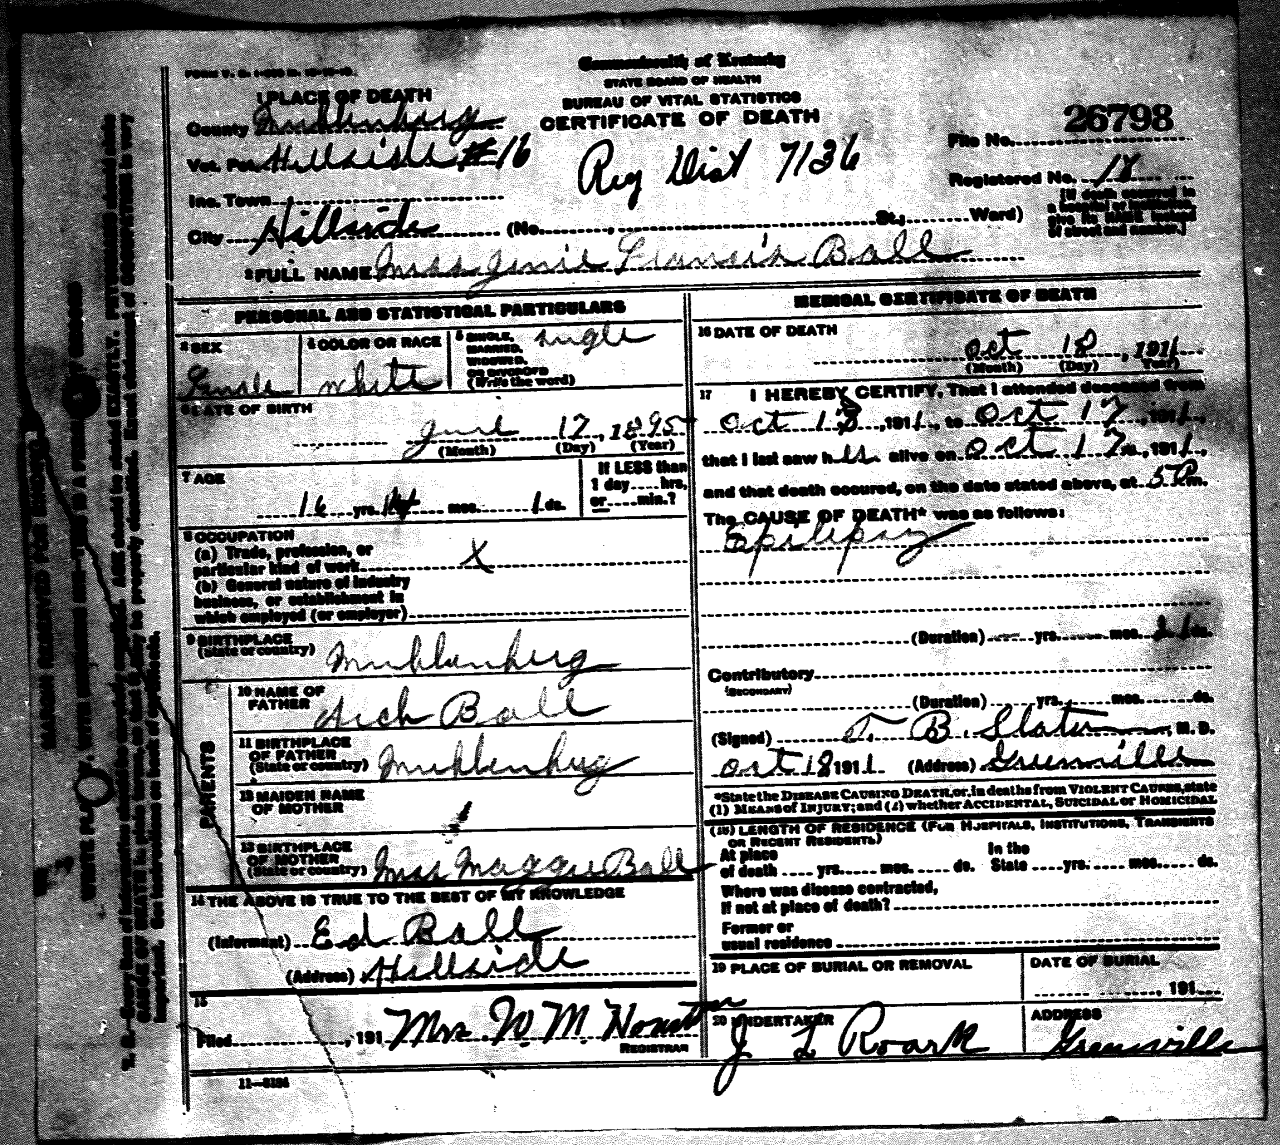 Commonwealth of Kentucky
STATE BOARD OF HEALTH
BUREAU OF VITAL STATISTICS
CERTIFICATE OF DEATH
1 PLACE OF DEATH
County Muhlenburg
Vot. Pct. Hillside #16
Inc. Town
City Hillside (No. , St.; Ward)
Reg Dist 7136
File No. 26798
Registered No. 18
[If death occurred in
a hospital or institution,
give its NAME instead
of street and number.]
2 FULL NAME Miss Jinie Francis Ball
PERSONAL AND STATISTICAL PARTICULARS
3 SEX
Female
4 COLOR OR RACE
white
5 SINGLE,
MARRIED,
WIDOWED,
OR DIVORCED
(Write the word)
single
6 DATE OF BIRTH
June 17, 1895
(Month) (Day) (Year)
7 AGE
16 yrs. mos. 1 ds.
If LESS than
1 day hrs,
or min.?
8 OCCUPATION
(a) Trade, profession, or
particular kind of work X
(b) General nature of industry
business, or establishment in
which employed (or employer)
9 BIRTHPLACE
(State or country) Muhlenburg
PARENTS
10 NAME OF
FATHER Arch Ball
11 BIRTHPLACE
OF FATHER
(State or country) Muhlenburg
12 MAIDEN NAME
OF MOTHER
13 BIRTHPLACE
OF MOTHER
(State or country) Mrs Maggie Ball
14 THE ABOVE IS TRUE TO THE BEST OF MY KNOWLEDGE
(Informant) Ed Ball
(Address) Hillside
15
Filed , 191 Mrs. W. M. Houston
REGISTRAR
11-3184
MEDICAL CERTIFICATE OF DEATH
16 DATE OF DEATH
Oct 18, 1911
(Month) (Day) Year)
17 I HEREBY CERTIFY, That I attended deceased from
Oct 13, 1911, to Oct 17, 1911,
that I last saw her alive on Oct 17, 1911,
and that death occured, on the date stated above, at 5 P.m.
The CAUSE OF DEATH* was as follows:
Epilepsy
(Duration) yrs. mos. ds.
Contributory
(SECONDARY)
(Duration) yrs. mos. ds.
(Signed) T. B. Slaton, M. D.
Oct 18 1911 (Address) Greenville
*State the DISEASE CAUSING DEATH, or, in deaths from VIOLENT CAUSES, state
(1) MEANS of INJURY; and (2) whether ACCIDENTAL, SUICIDAL or HOMICIDAL
(18) LENGTH OF RESIDENCE (FOR HOSPITALS, INSTITUTIONS, TRANSIENTS
OR RECENT RESIDENTS)
At place
of death yrs. mos. ds.
In the
State yrs. mos. ds.
Where was disease contracted,
If not at place of death?
Former or
usual residence
19 PLACE OF BURIAL OR REMOVAL
DATE OF BURIAL
, 191
20 UNDERTAKER
J L Roark
ADDRESS
Greenville
MARGIN RESERVED FOR BINDING